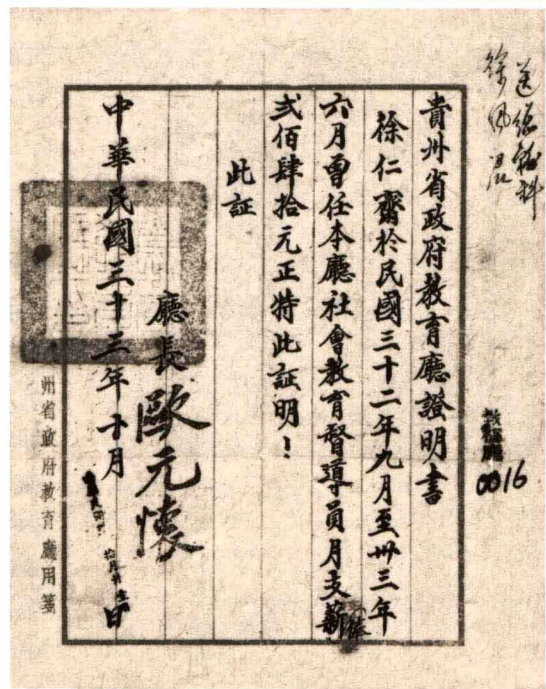 貴州省政府教育廳證明書
徐仁齋於民國三十二年九月至卅三年
六月曾任本廳社會教育督導員月支薪
弍佰肆拾元正特此証明！
此証
廳長歐元懷
中華民國三十三年十月 日
州省政府教育廳用箋
0016